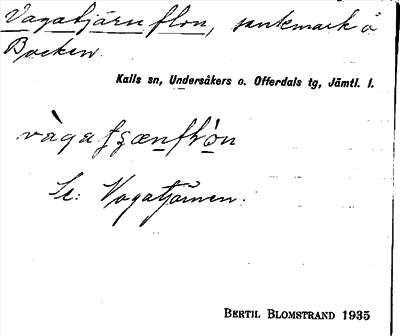 Vagatjärnflon, sankmark å
Backen.
Kalls sn, Undersåkers o. Offerdals tg, Jämtl. l.
Se: Vagatjärnen.
BERTIL BLOMSTRAND 1935